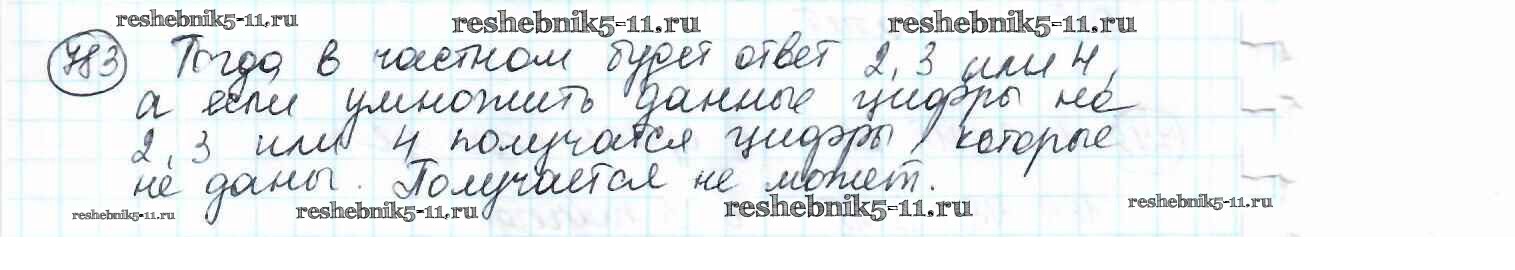 reshebnik5-11.ru reshebnik5-11.ru reshebnik5-11.ru
783 Тогда в частном будет ответ 2, 3 или 4,
а если умножить данные цифры на
2, 3 или 4 получатся цифры, которые
не даны. Получается не может.
reshebnik5-11.ru reshebnik5-11.ru reshebnik5-11.ru reshebnik5-11.ru